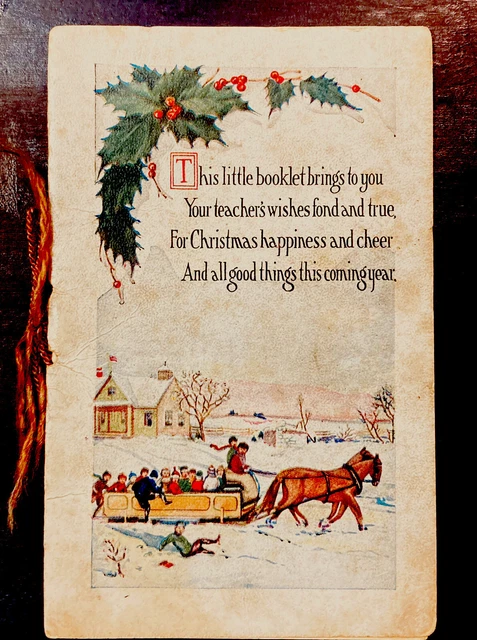 This little booklet brings to you
Your teacher's wishes fond and true,
For Christmas happiness and cheer
And all good things this coming year.